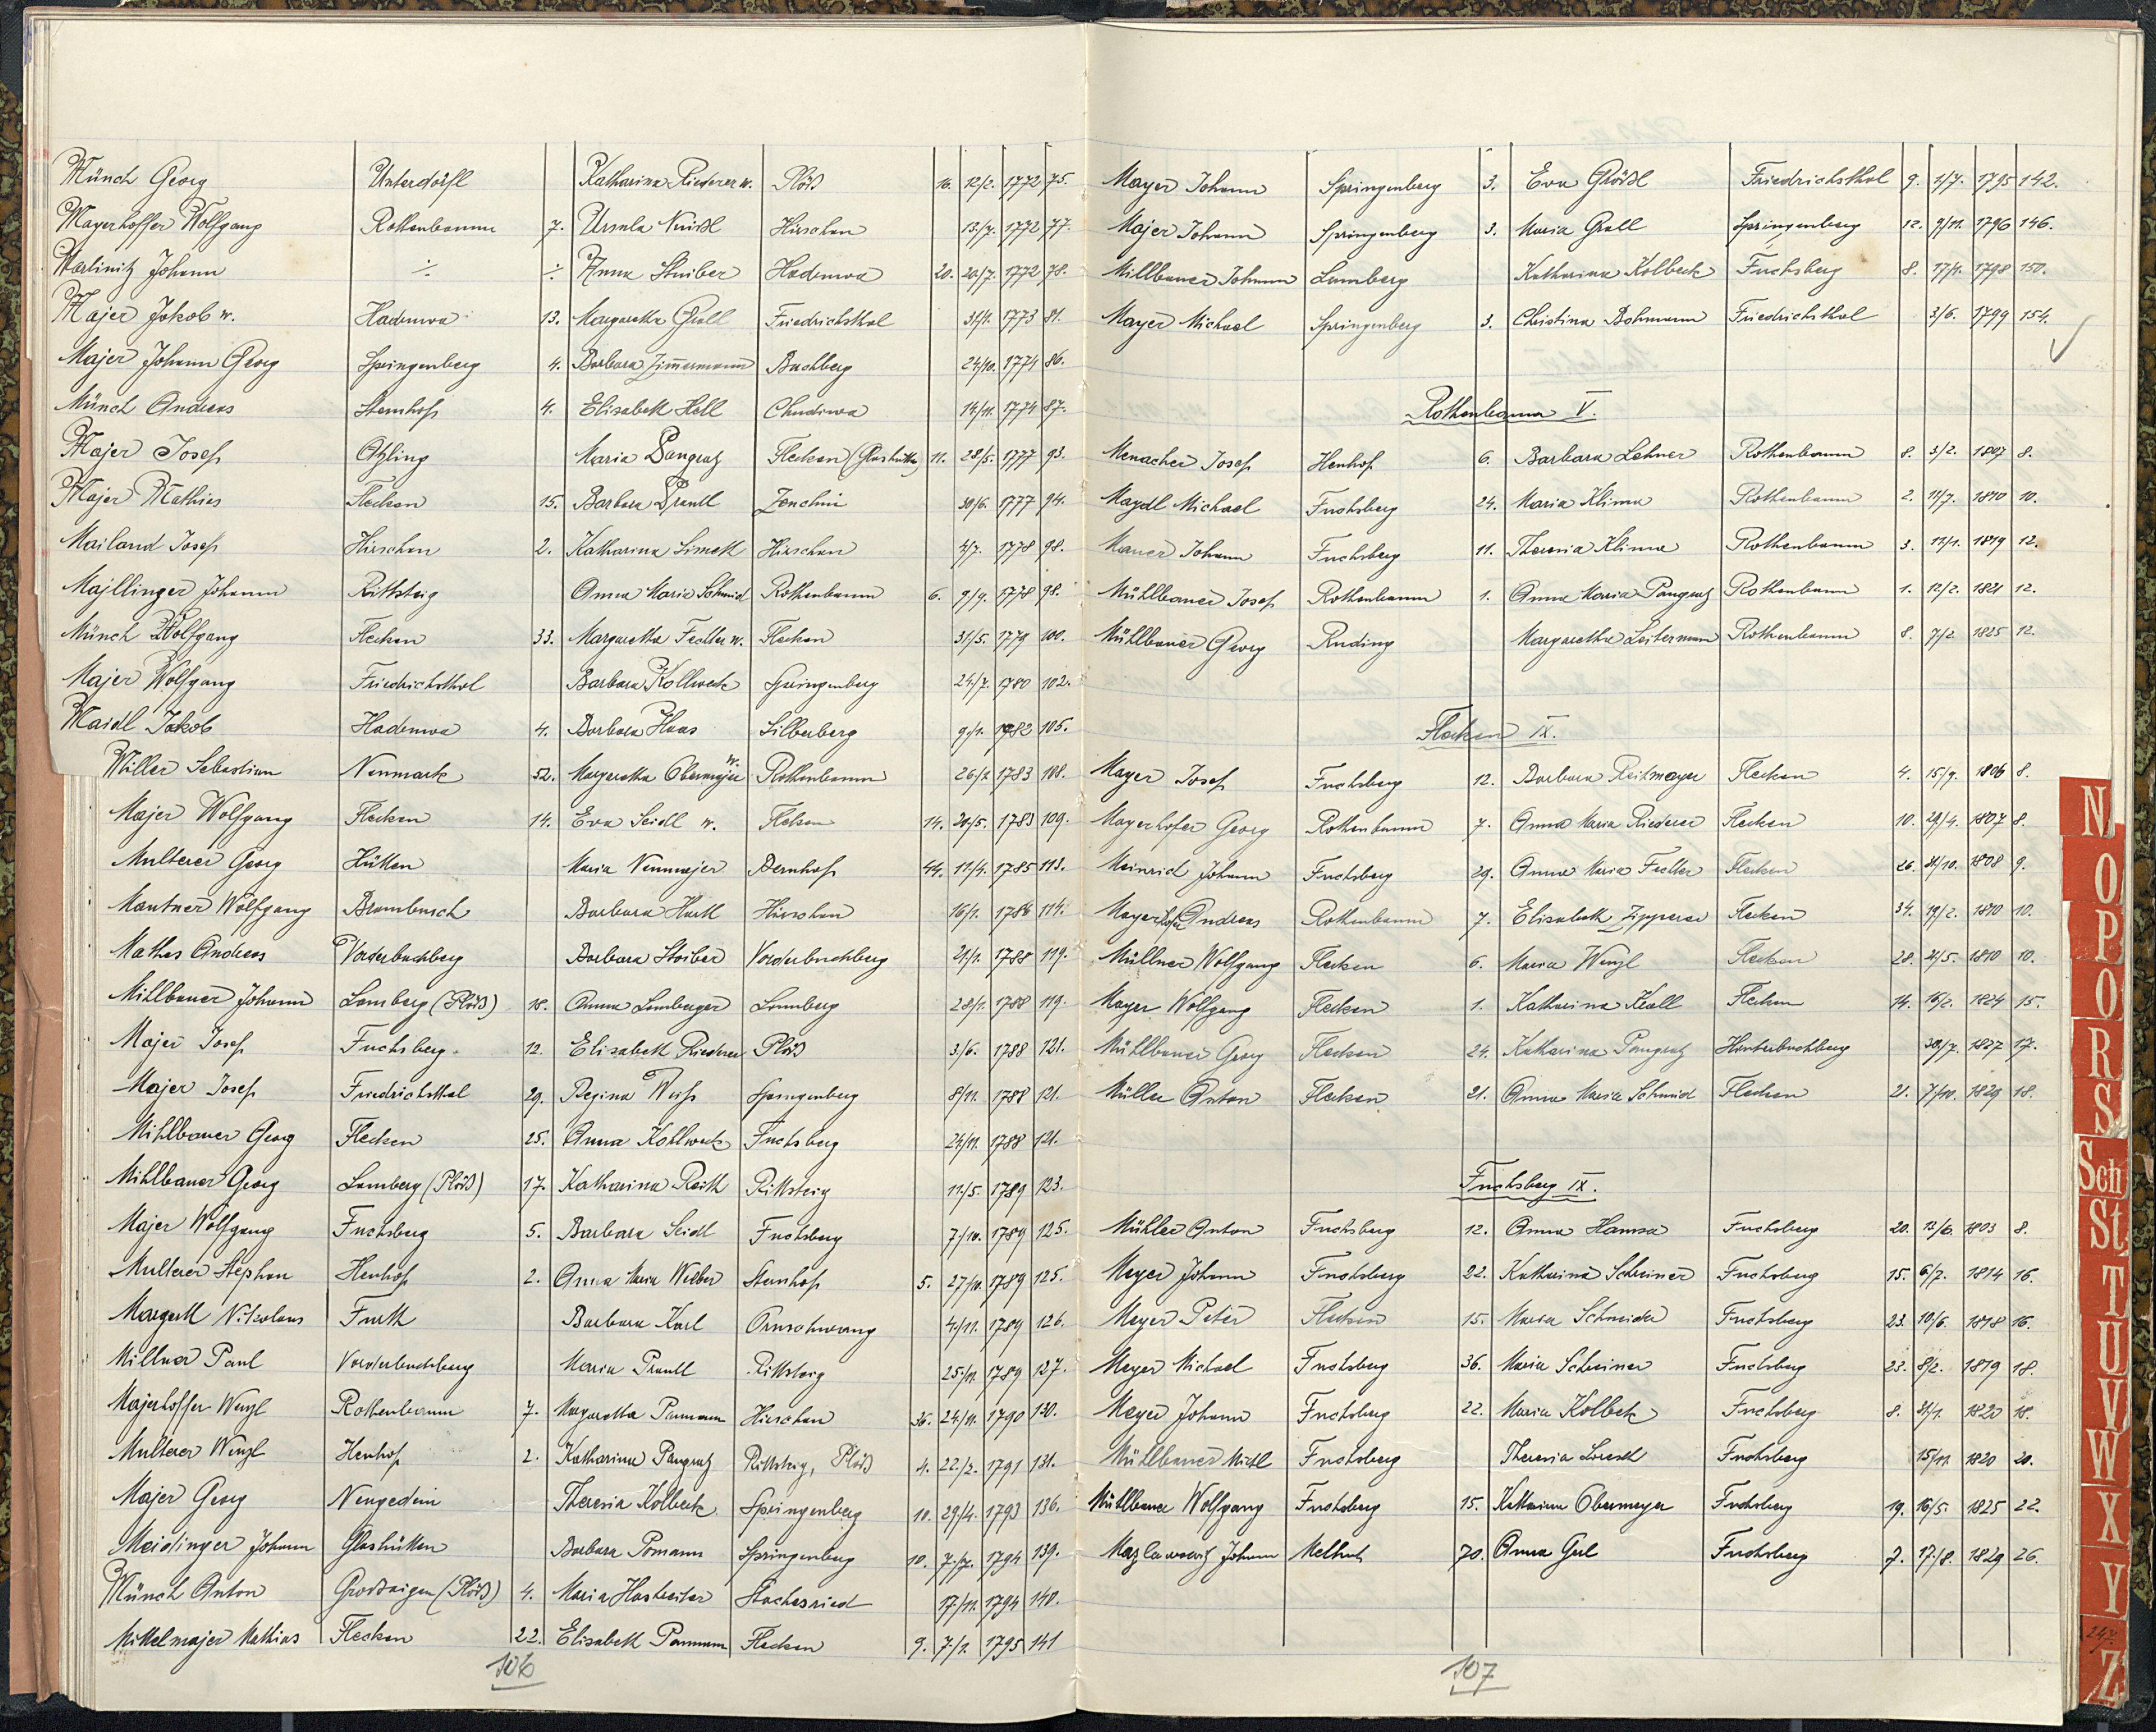 Münch Georg Unterdörfl Katharina Riederer w. Plöß 16. 12/2. 1772 75.
Mayerhoffer Wolfgang Rothenbaum 7. Ursula Neißl Hirschau 13/7. 1772 77.
Martinitz Johann ÷ ÷ Anna Stuiber Hadruwa 20. 20/7. 1772 78.
Majer Jakob w. Hadruwa 13. Margaretha Grall Friedrichsthal 31/1. 1773 81.
Majer Johann Georg Springenberg 4. Barbara Zimmermann Buchberg 24/10. 1774 86.
Münch Andreas Sternhof 4. Elisabeth Hell Chudiwa 14/11. 1774 87.
Majer Josef Atzling Maria Pangratz Flecken (Glashütte) 11. 28/5. 1777 93.
Majer Mathies Flecken 15. Barbara Prantl Zenchin 30/6. 1777 94.
Mailand Josef Hirschau 2. Katharina Simeth Hirschau 7/7. 1778 98.
Majllinger Johann Rittsteig Anna Maria Schmid Rothenbaum 6. 9/9. 1778 98.
Münch Wolfgang Flecken 33. Margaretha Fechter w. Flecken 31/5. 1779 100.
Majer Wolfgang Friedrichsthal Barbara Kollweck Springenberg 24/7. 1780 102.
Maidl Jakob Hadruwa 4. Barbara Haas Silberberg 9/1. 1782 105.
Miller Sebastian Neumark 52. Margaretha Obermajer w. Rothenbaum 26/2 1783 108.
Majer Wolfgang Flecken 14. Eva Seidl w. Flecken 14. 20/5. 1783 109.
Multerer Georg Hütten Maria Neumajer Sternhof 44. 11/4. 1785 113.
Mautner Wolfgang Brombusch Barbara Hartl Hirschau 16/1. 1786 114.
Mathes Andreas Vorderbuchberg Barbara Stoiber Vorderbuchberg 21/1. 1788 119.
Mihlbauer Johann Lamberg (Plöß) 18. Anna Lamberger Lamberg 28/1. 1788 119.
Majer Josef Fuchsberg 12. Elisabeth Riederer Plöß 3/6. 1788 121.
Majer Josef Friedrichsthal 29. Regina Weiß Springenberg 8/11. 1788 121.
Mihlbauer Georg Flecken 25. Anna Kohlweck Fuchsberg 24/11. 1788 121.
Mihlbauer Georg Lamberg (Plöß) 17. Katharina Reith Rittsteig 11/5. 1789 123.
Majer Wolfgang Fuchsberg 5. Barbara Seidl Fuchsberg 7/10. 1789 125.
Multerer Stephan Henhof 2. Anna Maria Weber Sternhof 5. 27/10. 1789 125.
Margeth Nikolaus Furth Barbara Karl Arnschwang 4/11. 1789 126.
Millner Paul Vorderbuchberg Maria Prantl Rittsteig 25/11. 1789 127.
Majerhoffer Wenzl Rothenbaum 7. Margaretha Pamann Hirschau 36. 24/11. 1790 130.
Multerer Wenzl Henhof 2. Katharina Pangratz Rittsteig, Plöß 4. 22/2. 1791 131.
Majer Georg Neugedein Theresia Kolbeck Springenberg 10. 29/4. 1793 136.
Meidinger Johann Glashütten Barbara Pomann Springenberg 10. 7/7. 1794 139.
Münch Anton Großaigen (Plöß) 4. Maria Hastreiter Stachesried 17/11. 1794 140.
Mittelmajer Mathias Flecken 22. Elisabeth Pamann Flecken 9. 7/1. 1795 141
106
Mayer Johann Springenberg 3. Eva Größl Friedrichsthal 9. 1/7. 1795 142.
Majer Johann Springenberg 3. Maria Grall Springenberg 12. 9/11. 1796 146.
Millbauer Johann Lamberg Katharina Kolbeck Fuchsberg 8. 17/1. 1798 150.
Mayer Michael Springenberg 3. Christina Bohmann Friedrichsthal 3/6. 1799 154.
Rothenbaum V.
Menacher Josef Henhof 6. Barbara Lehner Rothenbaum 8. 3/2. 1807 8.
Maydl Michael Fuchsberg 24. Maria Klima Rothenbaum 2. 11/7. 1810 10.
Maurer Johann Fuchsberg 11. Theresia Klima Rothenbaum 3. 12/1. 1819 12.
Mühlbauer Josef Rothenbaum 1. Anna Maria Pangratz Rothenbaum 1. 12/2. 1821 12.
Mühlbauer Georg Ruding Margaretha Leitermann Rothenbaum 8. 7/2. 1825 12.
Flecken IX.
Mayer Josef Fuchsberg 12. Barbara Reitmayer Flecken 4. 15/9. 1806 8.
Mayerhofer Georg Rothenbaum 7. Anna Maria Riederer Flecken 10. 29/4. 1807 8.
Meinrid Johann Fuchsberg 29. Anna Maria Fechter Flecken 26. 31/10. 1808 9.
Mayerhofer Andreas Rothenbaum 7. Elisabeth Zipperer Flecken 34. 19/2. 1810 10.
Müllner Wolfgang Flecken 6. Maria Wenzl Flecken 28. 21/5. 1810 10.
Mayer Wolfgang Flecken 1. Katharina Krall Flecken 14. 16/2. 1824 15.
Mühlbauer Georg Flecken 24. Katharina Pangratz Hinterbuchberg 30/7. 1827 17.
Müller Anton Flecken 21. Anna Maria Schmid Flecken 21. 7/10. 1829 18.
Fuchsberg IX.
Mühler Anton Fuchsberg 12. Anna Hamsa Fuchsberg 20. 12/6. 1803 8.
Meyer Johann Fuchsberg 22. Katharina Scheiner Fuchsberg 15. 6/7. 1814 16.
Meyer Peter Flecken 15. Maria Schneider Fuchsberg 23. 10/6. 1818 16.
Meyer Michael Fuchsberg 36. Maria Scheiner Fuchsberg 23. 8/2. 1819 18.
Meyer Johann Fuchsberg 22. Maria Kolbeck Fuchsberg 8. 31/1. 1820 18.
Mühlbauer Michl Fuchsberg Theresia Fuchsberg 15/11. 1820 20.
Mühlbauer Wolfgang Fuchsberg 15. Katharina Obermeyer Fuchsberg 19. 16/5. 1825 22.
Johann Melhut 70. Anna Gerl Fuchsberg 7. 17/8. 1829 26.
107
N
O
P
Q
R
S
Sch
St
T
U
V
W
X
Y
247.
Z